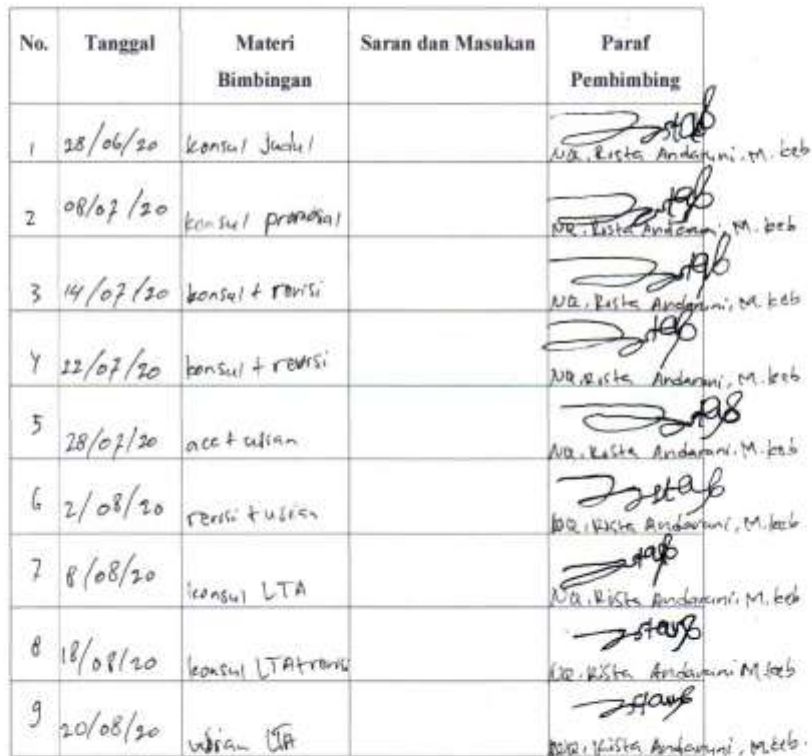 No. Tanggal Materi Bimbingan Saran dan Masukan Paraf Pembimbing
1 28/06/20 konsul Judul Rista Andaruni, M. keb
2 08/07/20 konsul proposal Rista Andaruni, M. keb
3 14/07/20 konsul + revisi Rista Andaruni, M. keb
4 22/07/20 konsul + revisi Rista Andaruni, M. keb
5 28/07/20 acc + ujian Rista Andaruni, M. keb
6 2/08/20 revisi + ujian Rista Andaruni, M. keb
7 8/08/20 konsul LTA Rista Andaruni, M. keb
8 18/08/20 konsul LTA+revisi Rista Andaruni M. keb
9 20/08/20 ujian LTA Rista Andaruni, M. keb.